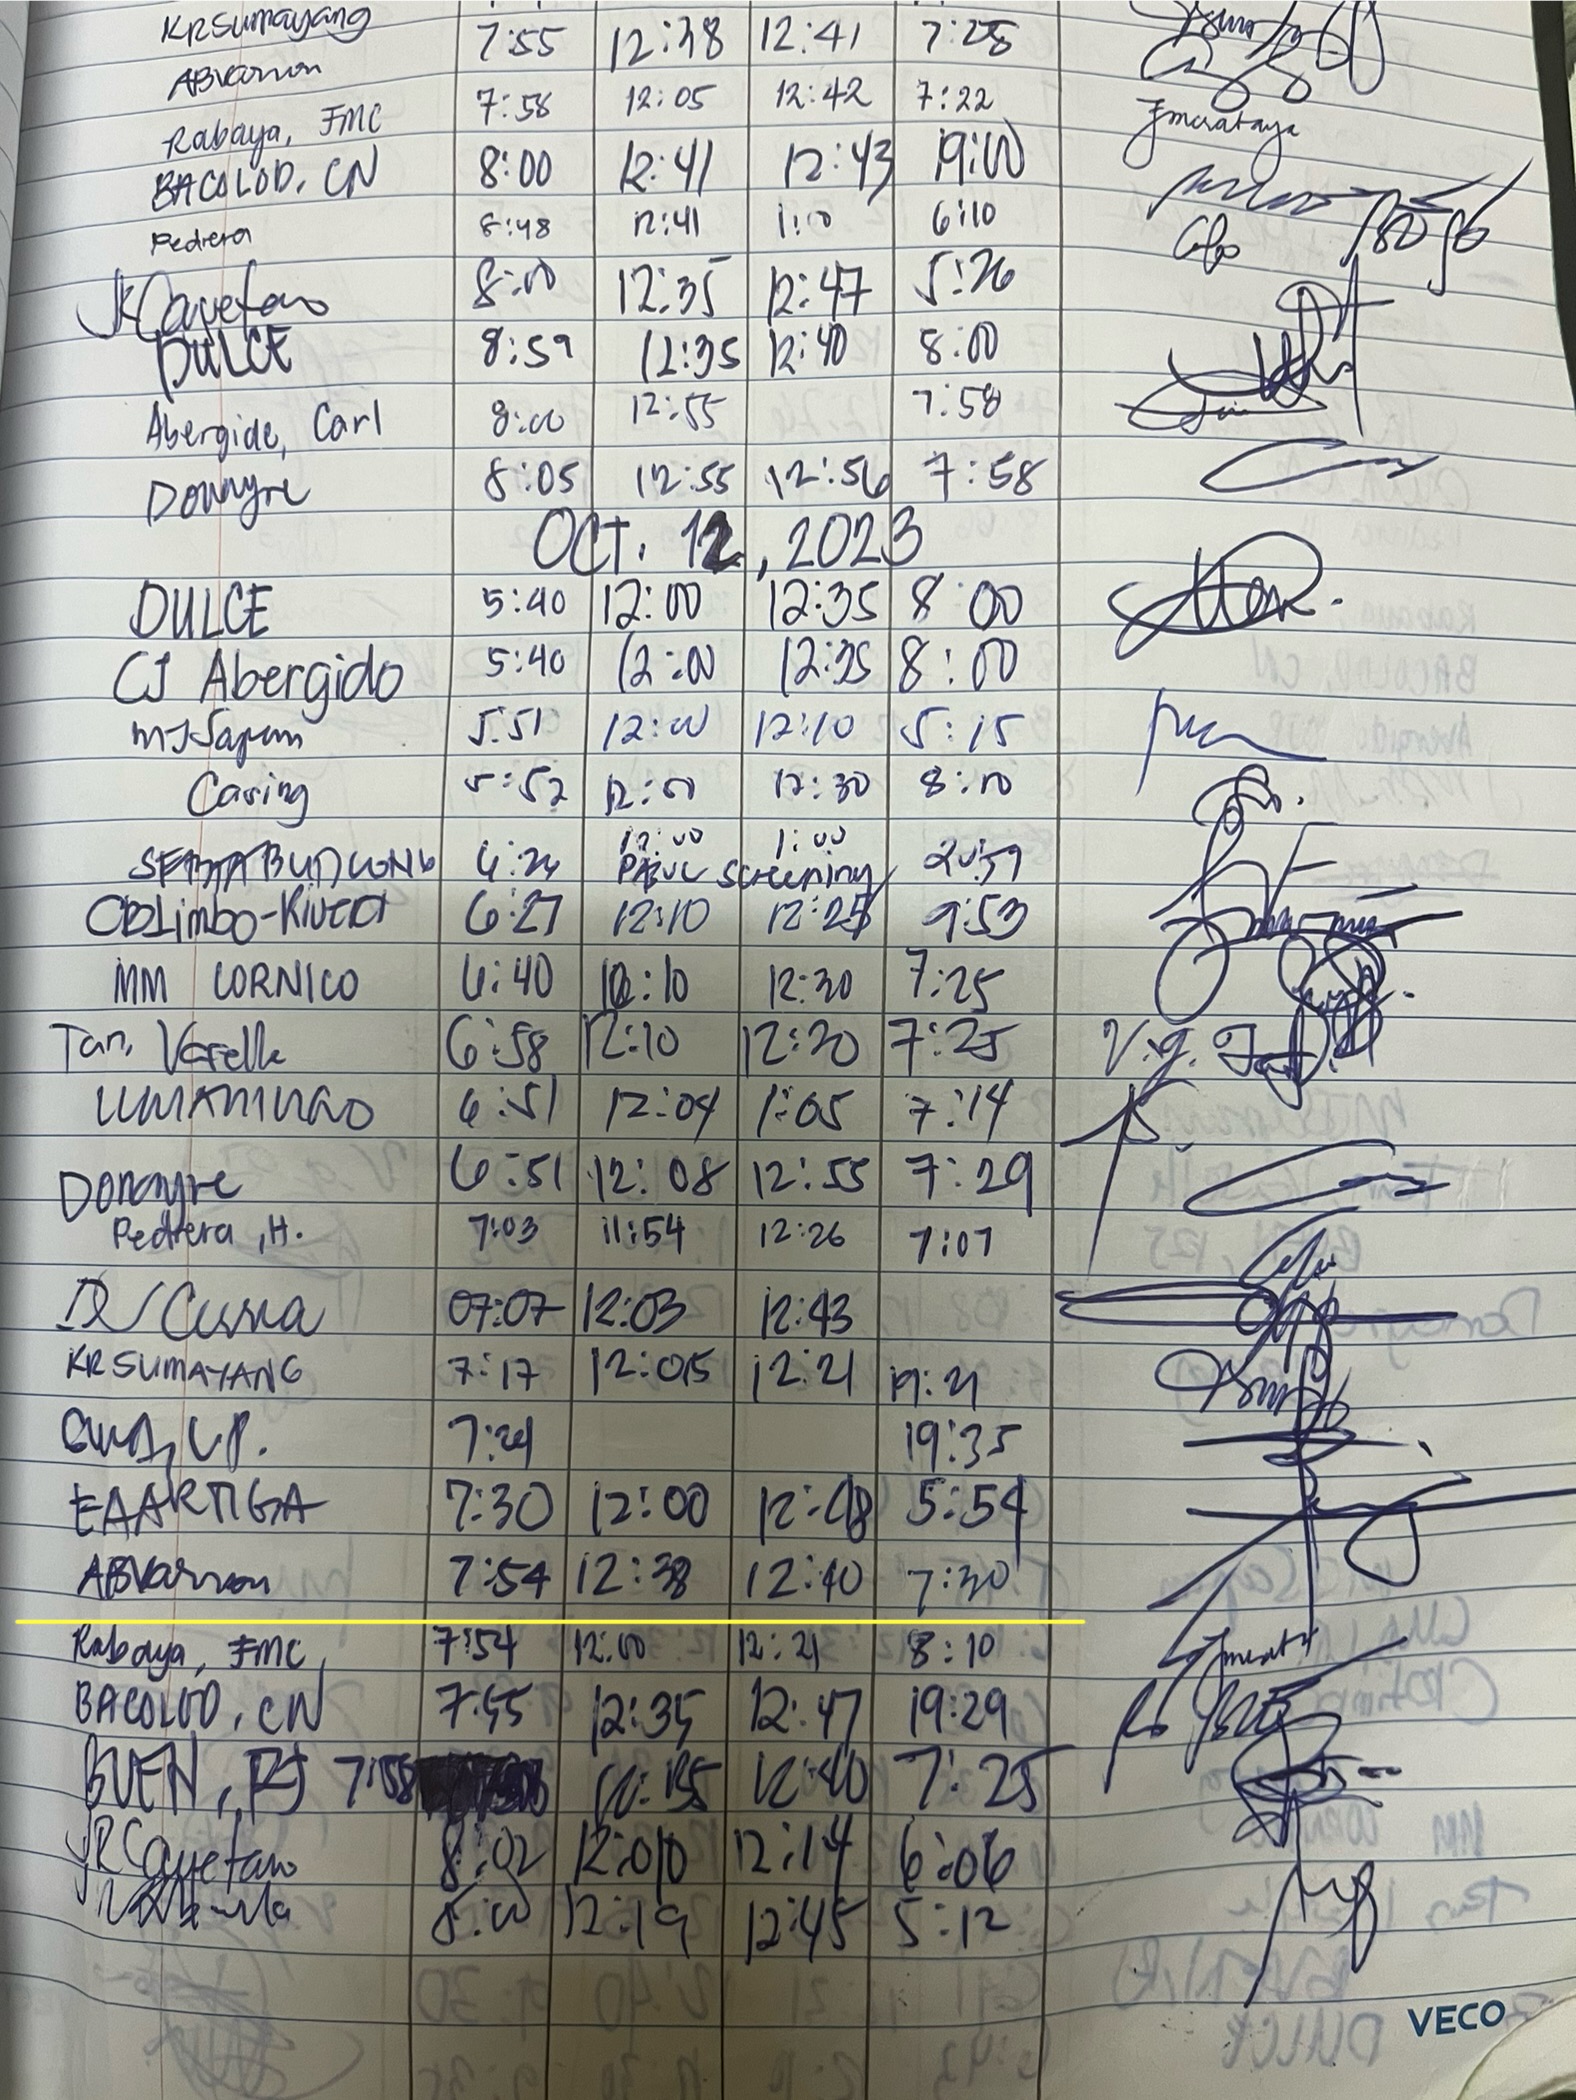 KRSumayang 7:55 12:38 12:41 7:28
ABVarron 7:58 12:05 12:42 7:22
Rabaya, FMC 8:00 12:41 12:43 19:00
BACOLOD, CN 8:48 12:41 1:10 6:10
Pedrera 8:00 12:35 12:47 5:26
JRCayetano
DULCE 8:59 12:35 12:40 8:00
Abergido, Carl 8:00 12:55 7:58
Donayre 8:05 12:55 12:56 7:58
OCT. 12, 2023
DULCE 5:40 12:00 12:35 8:00
CJ Abergido 5:40 12:00 12:35 8:00
5:51 12:00 12:10 5:15
Casing 5:52 12:00 12:30 8:10
12:00 1:00
6:24 Screening 20:59
CDLimbo-Rivera 6:27 12:10 12:25 9:53
MM CORNICO 6:40 12:10 12:30 7:25
Tan, Verelle 6:58 12:10 12:30 7:25 V.g. Tan
6:51 12:04 1:05 7:14
Donayre 6:51 12:08 12:55 7:29
Pedrera, H. 7:03 11:54 12:26 7:07
07:07 12:03 12:43
KRSUMAYANG 7:17 12:05 12:21 19:21
7:24 19:35
EAARTIGA 7:30 12:00 12:08 5:54
ABVarron 7:54 12:38 12:40 7:30
Rabaya, FMC, 7:54 12:00 12:21 8:10
BACOLOD, CN 7:55 12:35 12:47 19:29
BUEN, PJ 7:58 12:35 12:40 7:25
JRCayetano 8:02 12:010 12:14 6:06
8:00 12:19 12:45 5:12
VECO